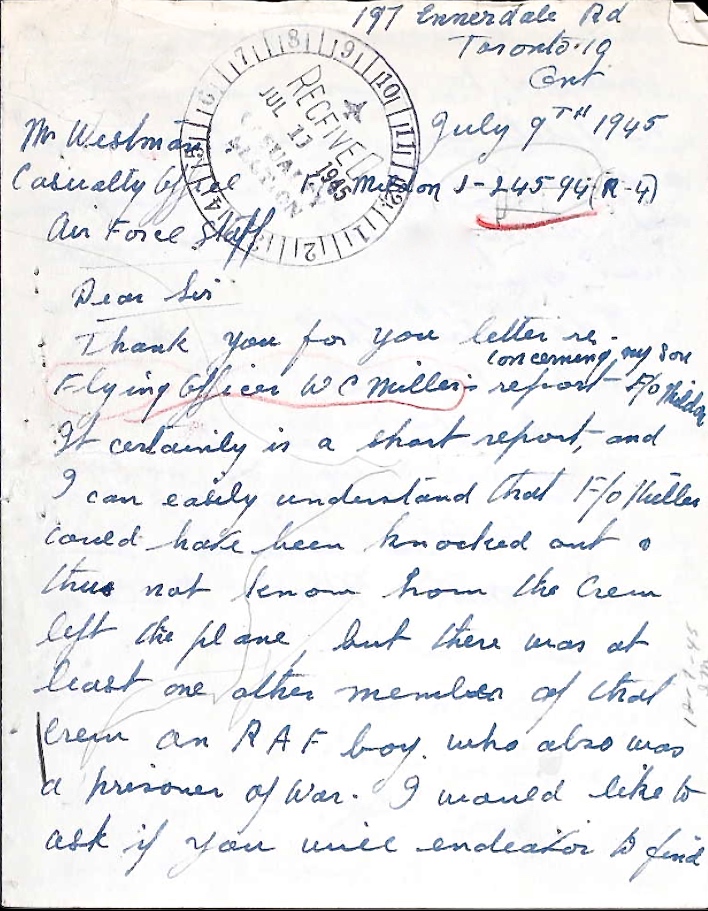 197 Ennerdale Rd
Toronto. 10
Ont
July 9TH 1945
Mr Westman
Casualty Office
J-24594 (R-4)
Air Force Staff
7 8 9 10 11 12 1 2 3 4 5 6
RECEIVED
JUL 13 1945
CASUALTY
SECTION
Dear Sir
Thank you for you letter re.
concerning my son
Flying Officer W C Miller's report - F/o
It certainly is a short report, and
I can easily understand that F/o Miller
could have been knocked out &
thus not know how the Crew
left the plane but there was at
least one other member of that
Crew an RAF boy. who also was
a prisoner of War. I would like to
ask if you will endeavor to find